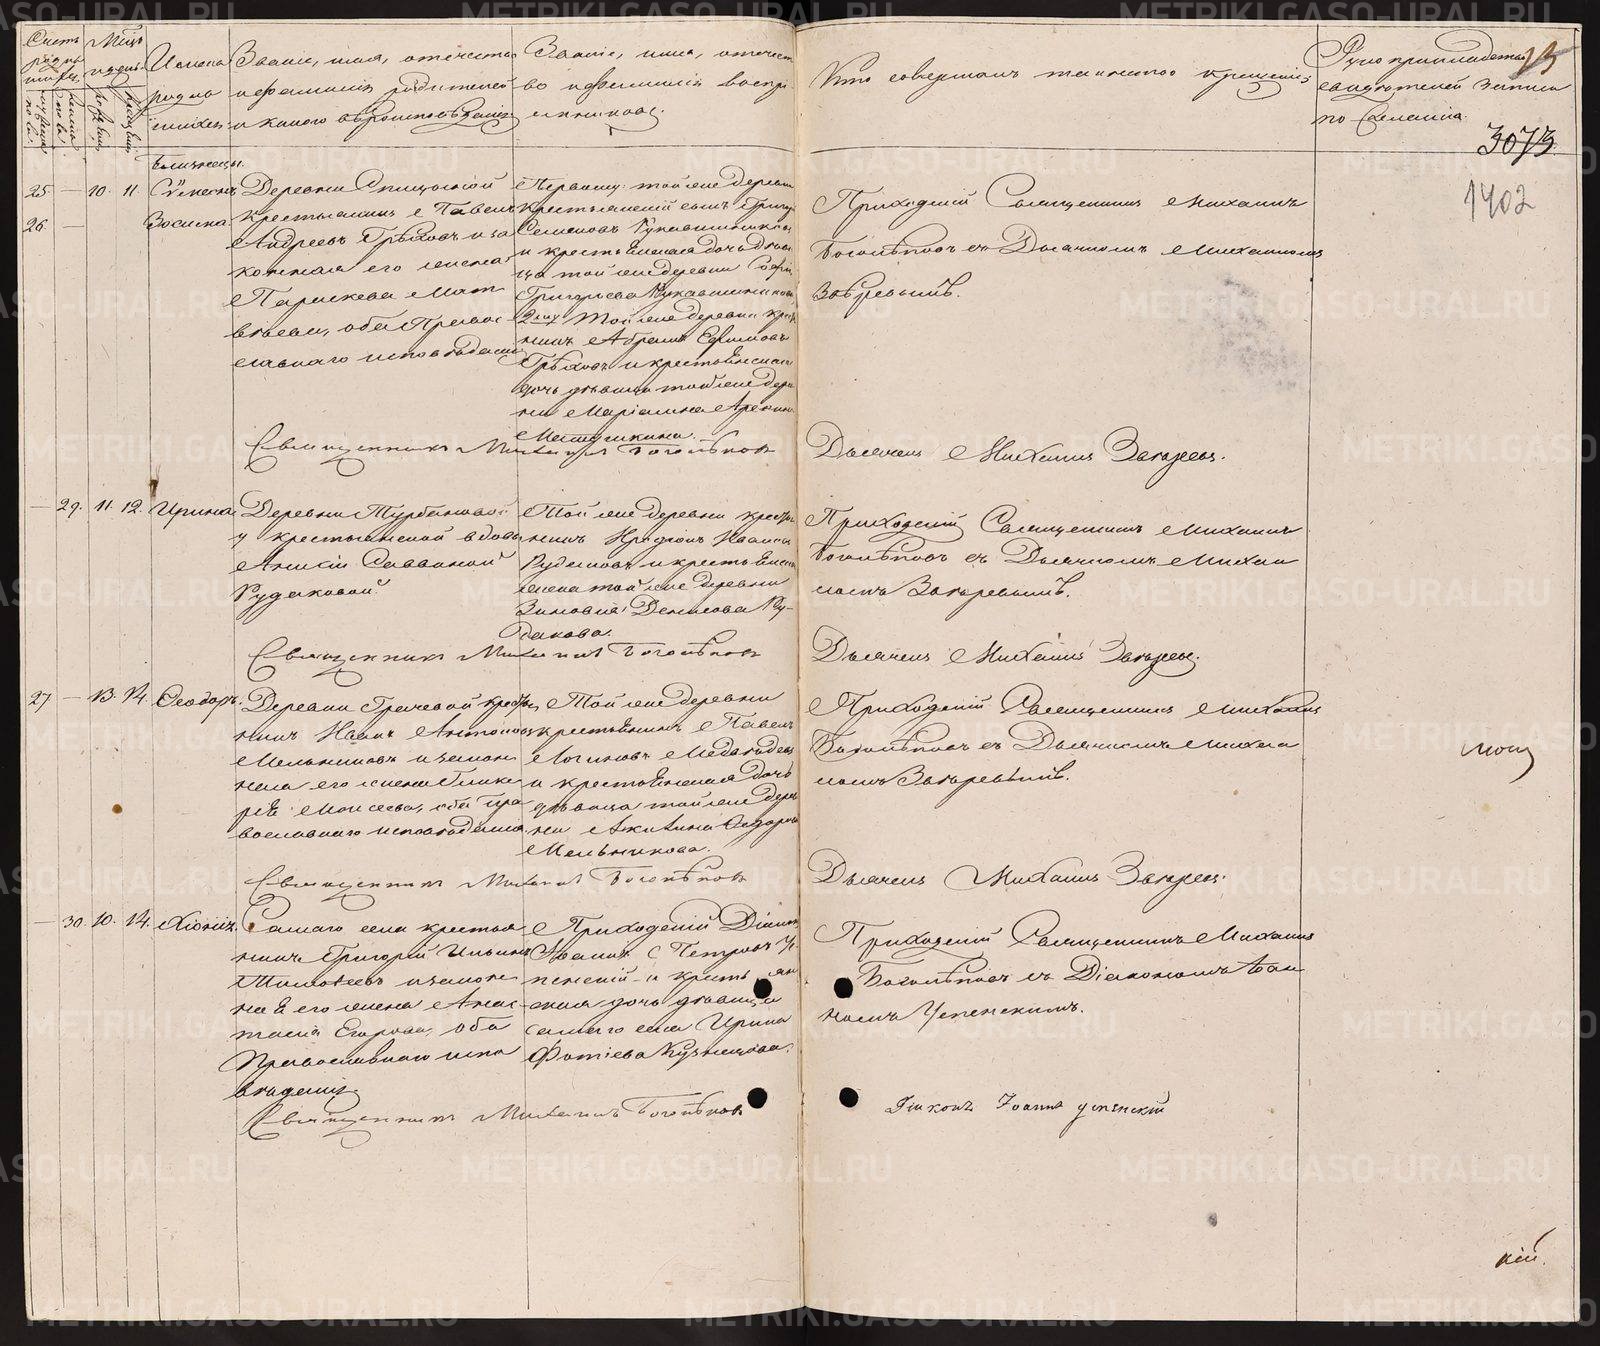 Счетъ родив
шихся.
мужеска
пола.
женска
го пола.
Мѣсяцъ
и день.
Имена
родив
шихся
Званіе, имя, отечество
и фамилія родителей
и какого вѣроисповѣданія
Званіе, имя, отечест
во и фамилія воспрі
емниковъ.
Кто совершалъ таинство крещенія
Рукоприкладство
свидѣтелей записи
по желанію
3073
1402
Близнецы.
25 — 10. 11.
26 —
Зосима.
Деревни
крестьянинъ Павелъ
Андреевъ Грѣховъ и за
конная его жена
Параскева Мат
вѣева, оба Правос
лавнаго исповѣданія
Первому: той же деревни
крестьянскій сынъ Григор
Семеновъ Рукавишников
и крестьянская дочь дѣви
ца той же деревни Софія
Григорьева Рукавишникова
2му той же деревни крест
нинъ Абрамъ Ефимовъ
Грѣховъ и крестьянская
дочь дѣвица той же дерев
ни Маріамна
Приходскій Священникъ Михаилъ
Боголѣповъ съ Дьячкомъ Михаиломъ
Священникъ Михаилъ Боголѣповъ
Дьячекъ Михаилъ
— 29. 11. 12. Ирина
Деревни Турбановой
у крестьянской вдовы
Анисіи Саввиной
Рудаковой.
Той же деревни крестья
нинъ Иродіонъ Иванов
Рудаковъ и крестьянская
жена той же деревни
Зиновія Денисова Ру-
дакова.
Приходскій Священникъ Михаилъ
Боголѣповъ съ Дьячкомъ Михаи
ломъ
Священникъ Михаилъ Боголѣповъ
Дьячекъ Михаилъ
27 — 13. 14. Ѳеодоръ.
Деревни Грачевой крестья
нинъ Иванъ Антоновъ
Мельниковъ и закон
ная его жена Глике
рія Моисеева, оба пра
вославнаго исповѣданія
Той же деревни
крестьянинъ Павелъ
Логиновъ Медвѣдевъ
и крестьянская дочь
дѣвица той же дерев
ни Акилина Ѳедорова
Мельникова.
Приходскій Священникъ Михаилъ
Боголѣповъ съ Дьячкомъ Михаи
ломъ
Священникъ Михаилъ Боголѣповъ
Дьячекъ Михаилъ
— 30. 10. 14. Хіонія.
Самаго села крестья
нинъ Григорій Ильинъ
Тимоѳеевъ и закон
ная его жена Анас
тасія Егорова, оба
Православнаго испо
вѣданія.
Приходскій Діаконъ
Іоаннъ Петровъ Ус
пенскій и крестьян
ская дочь дѣвица
самаго села Ирина
Фотіева Кузнецова.
Приходскій Священникъ Михаилъ
Боголѣповъ съ Діакономъ Іоан
номъ Успенскимъ.
Священникъ Михаилъ Боголѣповъ
Діаконъ Іоаннъ Успенскій
кій.